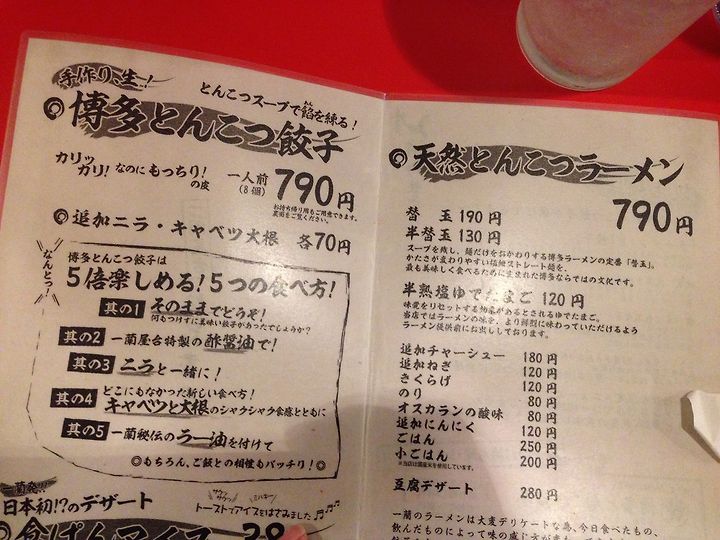 手作り、生!
とんこつスープで餡を練る!
◎博多とんこつ餃子
カリッ
カリ!なのにもっちり!
の皮
一人前
(8個)
790円
お持ち帰り用もご用意できます。
裏面をご覧ください。
◎追加ニラ・キャベツ大根 各70円
なんとっ!
博多とんこつ餃子は
5倍楽しめる!5つの食べ方!
其の1 そのままでどうぞ!
何もつけずに美味い餃子があったでしょうか?
其の2 一蘭屋台特製の酢醤油で!
其の3 ニラと一緒に!
其の4 どこにもなかった新しい食べ方!
キャベツと大根のシャクシャク食感とともに
其の5 一蘭秘伝のラー油を付けて
◎もちろん、ご飯との相性もバッチリ!◎
一蘭発!!
日本初!?のデザート
トーストでアイスをはさみました♪♪♪
食ぱんアイス
◎天然とんこつラーメン
790円
替玉 190円
半替玉 130円
スープを残し、麺だけをおかわりする博多ラーメンの定番「替玉」。
かたさが変わりやすい極細ストレート麺を、
最も美味しく食べるために生まれた博多ならではの文化です。
半熟塩ゆでたまご 120円
味覚をリセットする効果があるとされるゆでたまご。
当店ではラーメンの味を、より鮮烈に味わっていただけるよう
ラーメン提供前にお出ししております。
追加チャーシュー 180円
追加ねぎ 120円
きくらげ 120円
のり 80円
オスカランの酸味 80円
追加にんにく 120円
ごはん 250円
小ごはん 200円
※当店は国産米を使用しています。
豆腐デザート 280円
一蘭のラーメンは大変デリケートな為、今日食べたもの、
飲んだものによって味の感じ方が